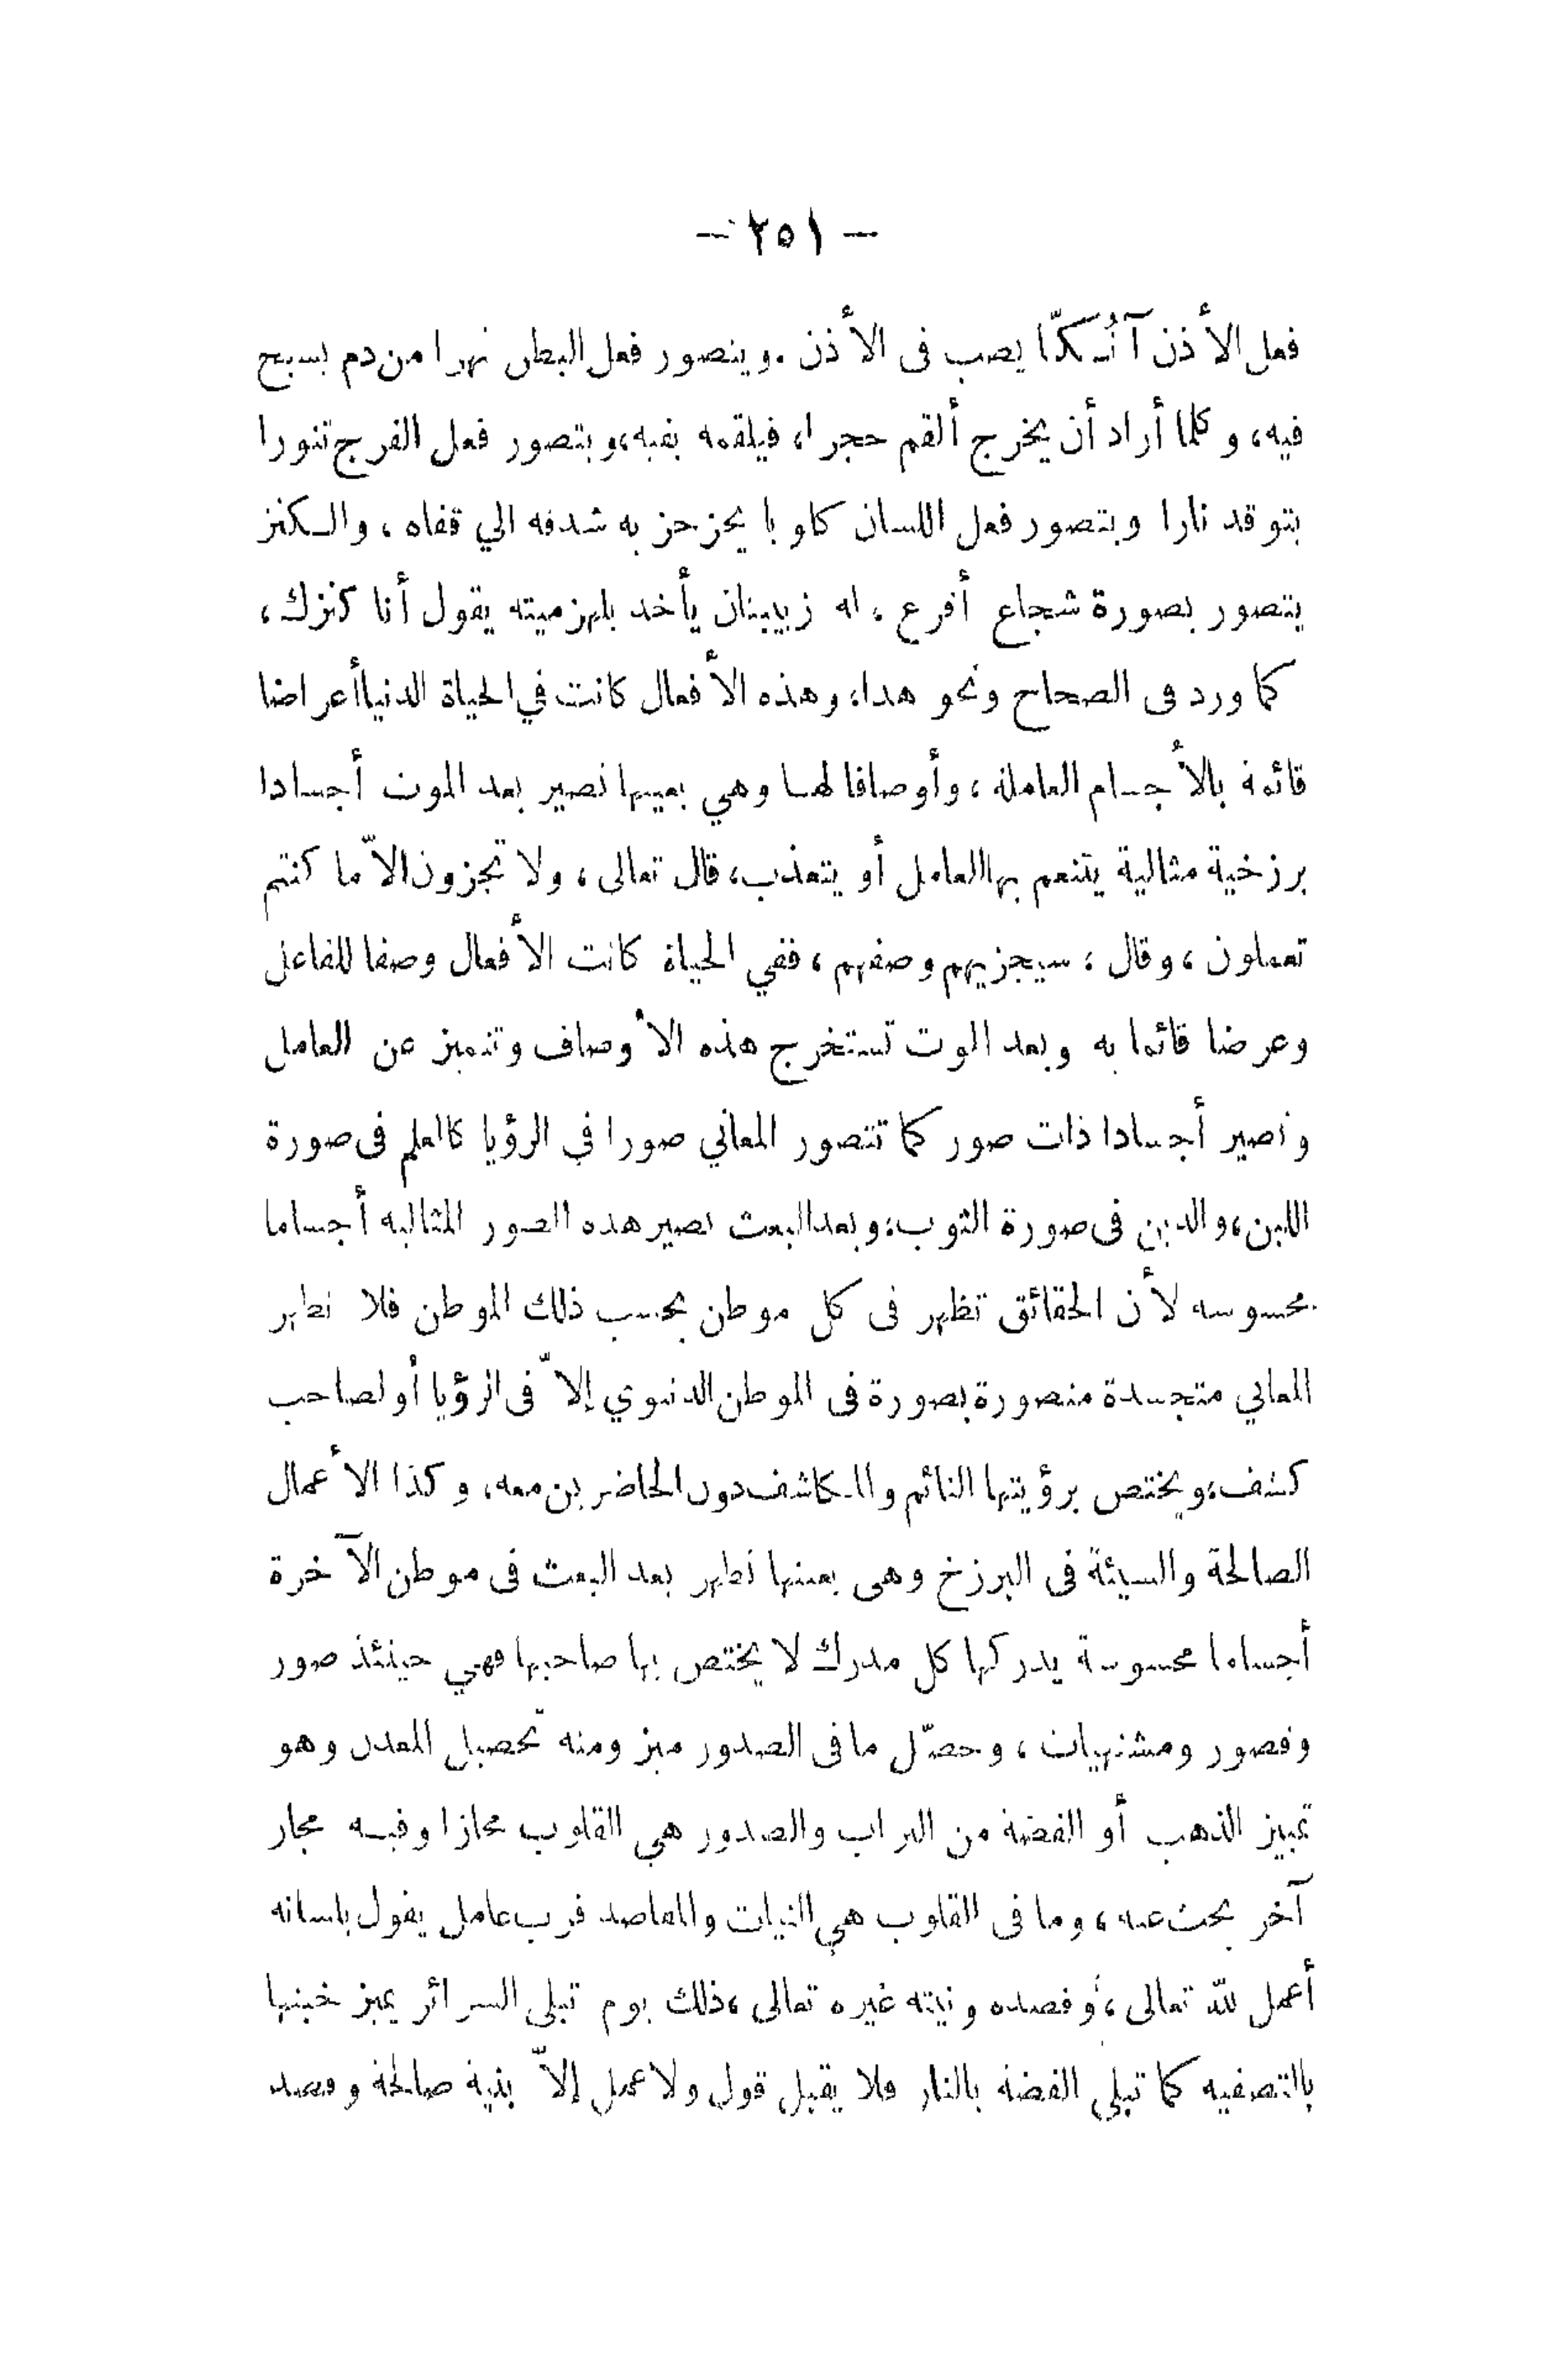 — ٢٥١ —
فعل الأذن آنُـكّا يصب فى الأذن . ويتصور فعل البطن نهرا من دم يسبح
فيه، وكلما أراد أن يخرج ألقم حجرا، فيلقمه بفيه، ويتصور فعل الفرج تنورا
يتوقد نارا ويتصور فعل اللسان كلوبا يحزحز به شدقه الي قفاه ، والـكنز
يتصور بصورة شجاع أقرع ، له زبيبتان يأخذ بلهزميته يقول أنا كنزك ،
كما ورد فى الصحاح ونحو هذا، وهذه الأفعال كانت في الحياة الدنيا أعراضا
قائمة بالأجسام العاملة ، وأوصافا لهـا وهي بعينها تصير بعد الموت أجسادا
برزخية مثالية يتنعم بها العامل أو يتعذب، قال تعالى ، ولا تجزون الاّ ما كنتم
تعملون ، وقال ، سيجزيهم وصفهم ، ففي الحياة كانت الأفعال وصفا للفاعل
وعرضا قائما به وبعد الموت تستخرج هذه الأوصاف وتتميز عن العامل
وتصير أجسادا ذات صور كما تتصور المعاني صورا في الرؤيا كالعلم فى صورة
اللبن، والدين فى صورة الثوب، وبعد البعث تصير هذه الصور المثالية أجساما
محسوسه لأن الحقائق تظهر فى كل موطن بحسب ذلك الموطن فلا تظهر
المعاني متجسدة متصورة بصورة فى الموطن الدنيوي إلاّ فى الرؤيا أو لصاحب
كشف، ويختص برؤيتها النائم والمـكاشف دون الحاضرين معه، وكذا الأعمال
الصالحة والسيئة فى البرزخ وهى بعينها تظهر بعد البعث فى موطن الآخرة
أجساما محسوسة يدركها كل مدرك لا يختص بها صاحبها فهي حينئذ صور
وقصور ومشتهيات ، وحصّل ما فى الصدور ميز ومنه تحصيل المعدن وهو
تمييز الذهب أو الفضة من التراب والصدور هي القلوب مجازا وفيـه مجاز
آخر بحث عنه ، وما فى القلوب هي النيات والمقاصد فرب عامل يقول بلسانه
أعمل للّه تعالى ، وقصده ونيته غيره تعالى ، ذلك يوم تبلى السرائر يميز خبيثها
بالتصفيه كما تبلى الفضة بالنار فلا يقبل قول ولا عمل إلاّ بنية صالحة وقصد